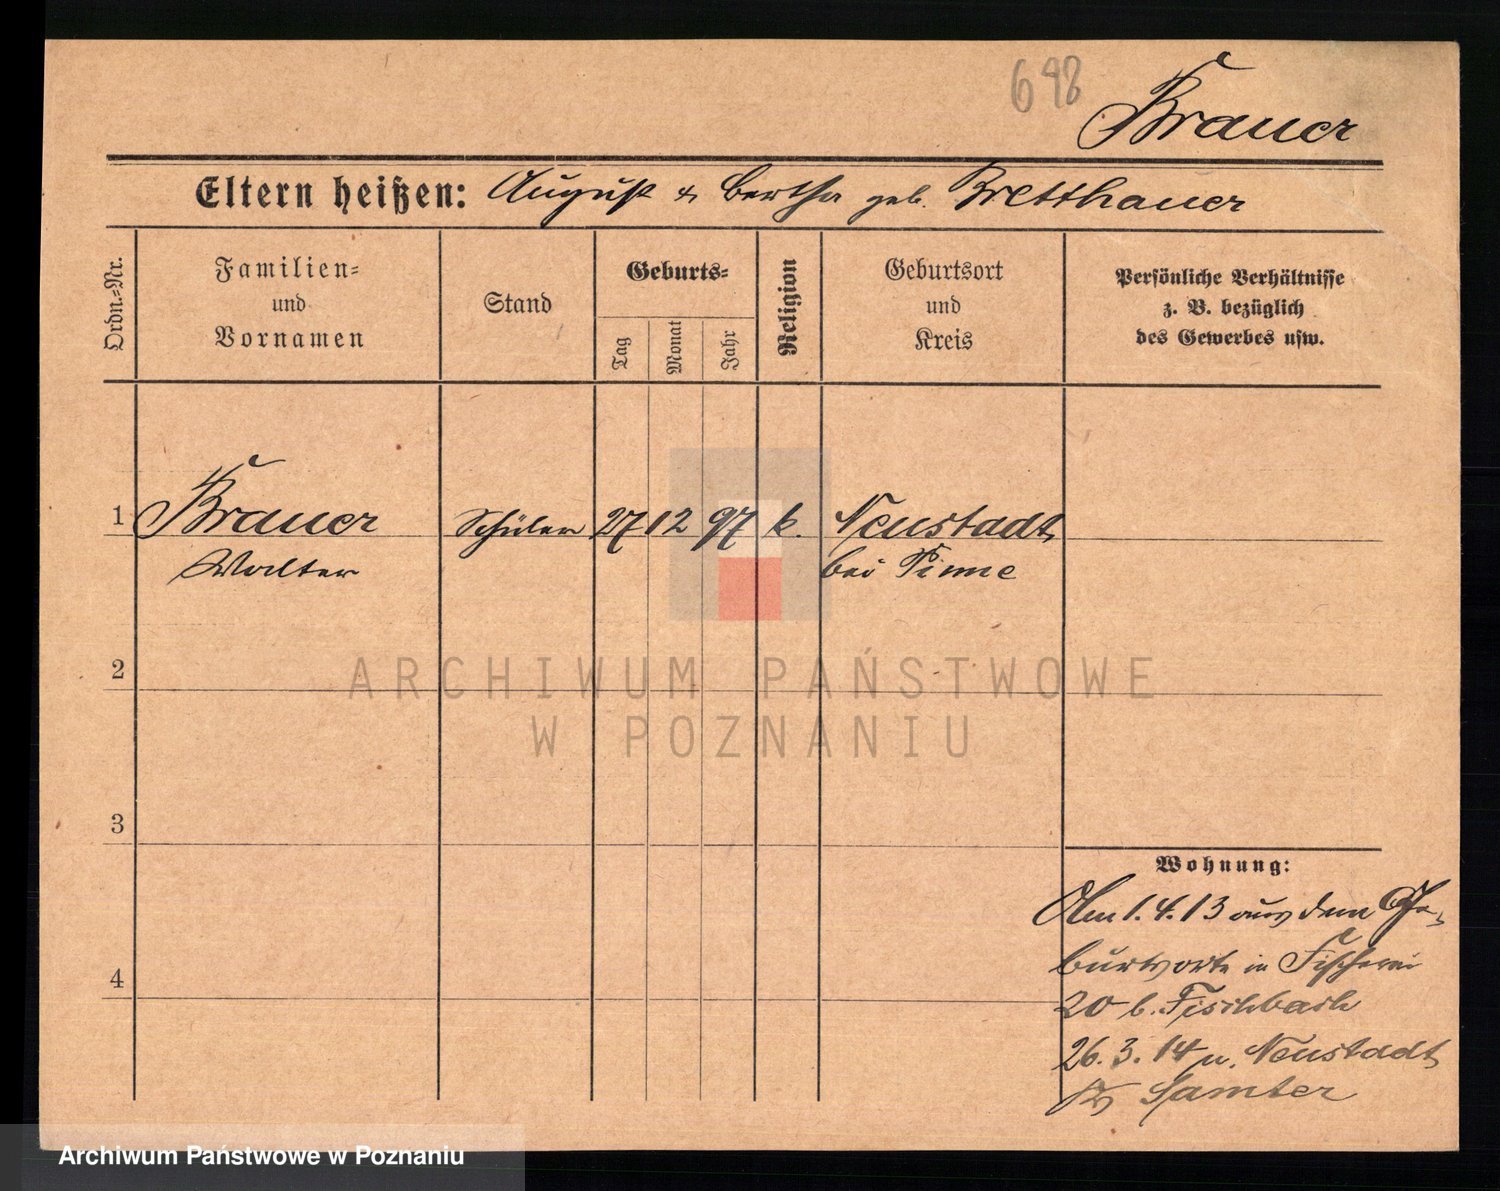 698
Brauer
Eltern heißen: August & Bertha geb. Bretthauer
Ordn.=Nr.
Familien=
und
Vornamen
Stand
Geburts=
Tag
Monat
Jahr
Religion
Geburtsort
und
Kreis
Persönliche Verhältnisse
z. B. bezüglich
des Gewerbes usw.
1 Brauer Schüler 27 12 97 k. Neustadt
Walter bei Pinne
2
3
4
Wohnung:
Am 1.4.13 aus dem Ge-
burtsorte in Fischerei
20 b. Fischbach
26.3.14 n. Neustadt
Samter
ARCHIWUM PAŃSTWOWE
W POZNANIU
Archiwum Państwowe w Poznaniu